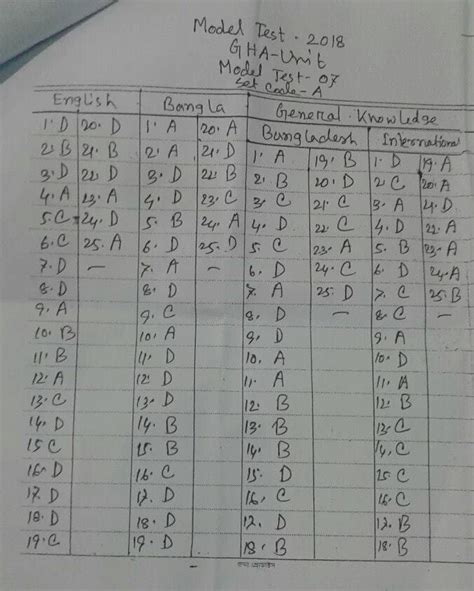 Model Test. 2018
GHA-Unit
Model Test-07
Set Code-A
English Bangla General Knowledge
Bangladesh International
1. D 20. D 1. A 20. A 1. A 19. B 1. D 19. A
2. B 21. B 2. A 21. D 2. B 20. D 2. C 20. A
3. D 22. D 3. D 22. B 3. C 21. C 3. A 21. D
4. A 23. A 4. D 23. C 4. D 22. C 4. D 22. A
5. C 24. D 5. B 24. A 5. C 23. A 5. B 23. A
6. C 25. A 6. D 25. D 6. D 24. C 6. D 24. A
7. D — 7. A — 7. A 25. D 7. C 25. B
8. D 8. D 8. C —
9. A 9. C 9. D 9. A
10. B 10. A 10. A 10. D
11. B 11. D 11. A 11. A
12. A 12. D 12. B 12. B
13. C 13. D 13. B 13. C
14. D 14. B 14. B 14. C
15 C 15. B 15. D 15. C
16. D 16. C 16. C 16. C
17. D 17. D 17. D 17. B
18. D 18. D 18. B 18. B
19. C 19. D